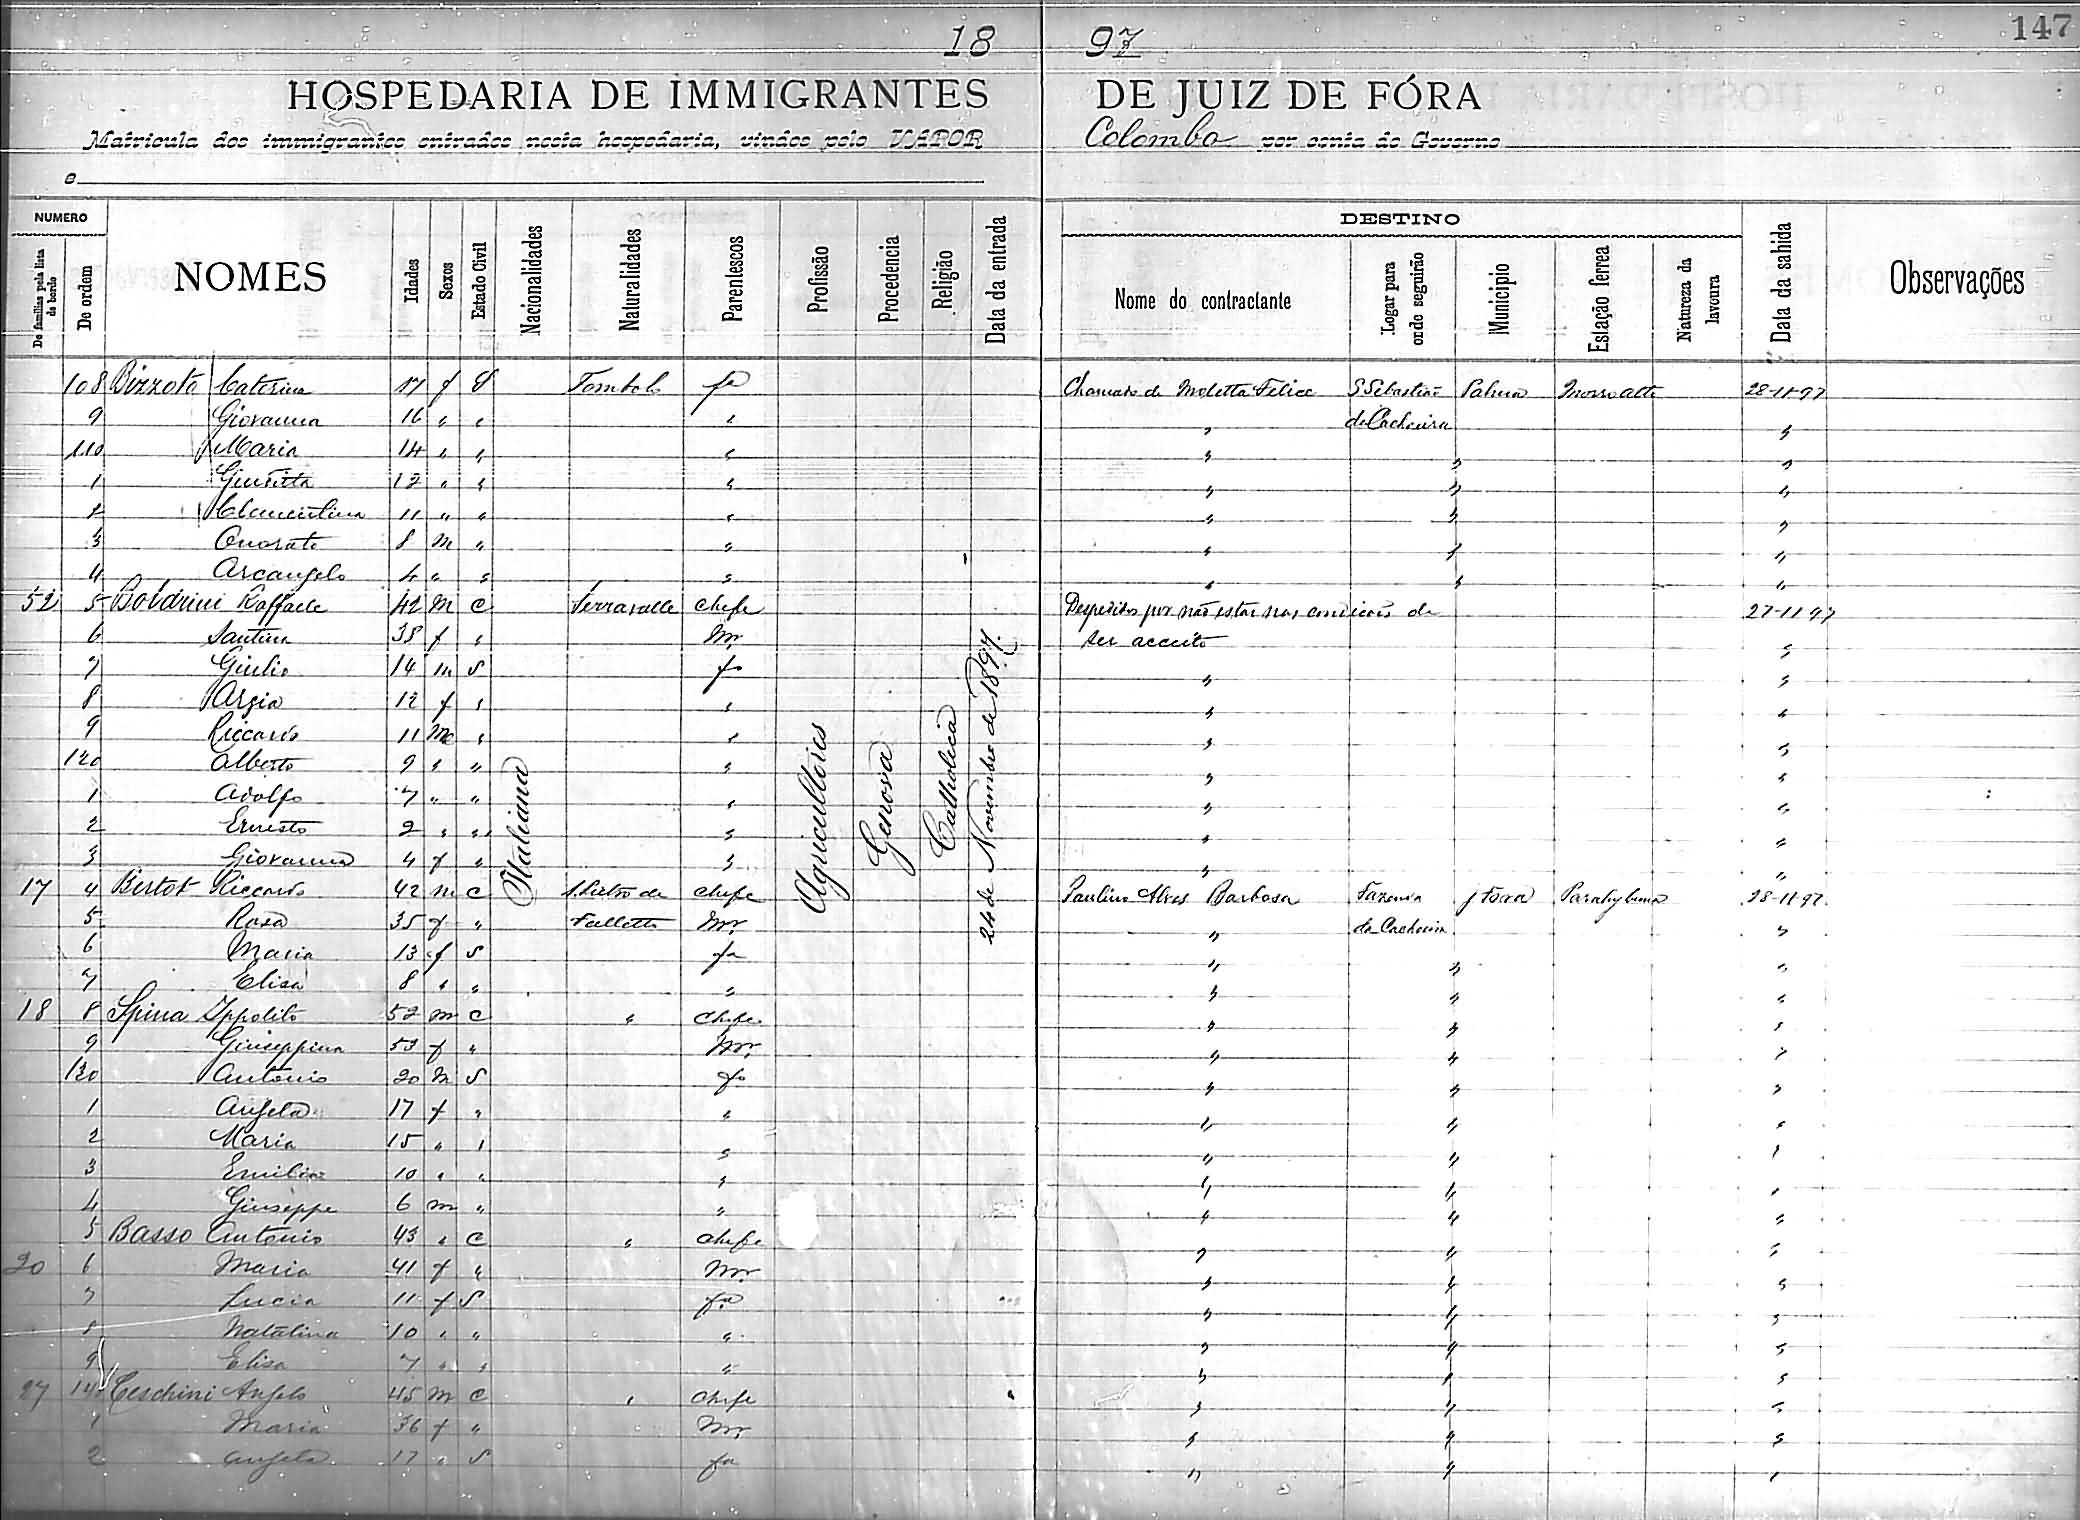 147
18 97
HOSPEDARIA DE IMMIGRANTES DE JUIZ DE FÓRA
Matricula dos immigrantes entrados nesta hospedaria, vindos pelo VAPOR Colombo por conta do Governo
e
NUMERO
DESTINO
De familias pela lista de bordo
De ordem
NOMES
Idades
Sexos
Estado Civil
Nacionalidades
Naturalidades
Parentescos
Profissão
Procedencia
Religião
Data da entrada
Nome do contractante
Logar para onde seguirão
Municipio
Estação ferrea
Natureza da lavoura
Data da sahida
Observações
Italiana
Agricultores
Genova
Catholica
24 de Novembro de 1897.
108 Bizzoto Caterina 17 f S Tombolo fa Chamado de Moletta Felice S Sebastião Palma Morro alto 28-11-97
9 Giovanna 16 " " " " da Cachoeira "
110 Maria 14 " " " " " "
1 Giuditta 12 " " " " " "
2 Clementina 11 " " " " " "
3 Onorato 8 m " " " " "
4 Arcangelo 4 " " " " " "
52 5 Boldrini Raffaele 42 m C Serravalle Chefe Despedidos por não estar nas condicões de 27-11-97
6 Santina 38 f " mr ser acceito "
7 Giulio 14 m S fo " "
8 Argia 12 f " " " "
9 Riccardo 11 m " " " "
120 Alberto 9 " " " " "
1 Adolfo 7 " " " " "
2 Ernesto 2 " " " " "
3 Giovanna 4 f " " " "
17 4 Bertot Riccardo 42 m C S. Pietro de Chefe Paulino Alves Barbosa Fazenda J Fora Parahybuna 28-11-97
5 Rosa 35 f " Falletto mr " da Cachoeira "
6 Maria 13 f S fa " " "
7 Elisa 8 " " " " " "
18 8 Spina Ippolito 52 m C " Chefe " " "
9 Giuseppina 53 f " mr " " "
130 Antonio 20 m S fo " " "
1 Angela 17 f " " " " "
2 Maria 15 " " " " " "
3 Emilia 10 " " " " " "
4 Giuseppe 6 m " " " " "
5 Basso Antonio 43 " C " Chefe " " "
20 6 Maria 41 f " mr " " "
7 Lucia 11 f S fa " " "
8 Natalina 10 " " " " " "
9 Elisa 7 " " " " " "
27 140 Ceschini Angelo 45 m C " Chefe " " "
1 Maria 36 f " mr " " "
2 Angela 17 " S fa " " "